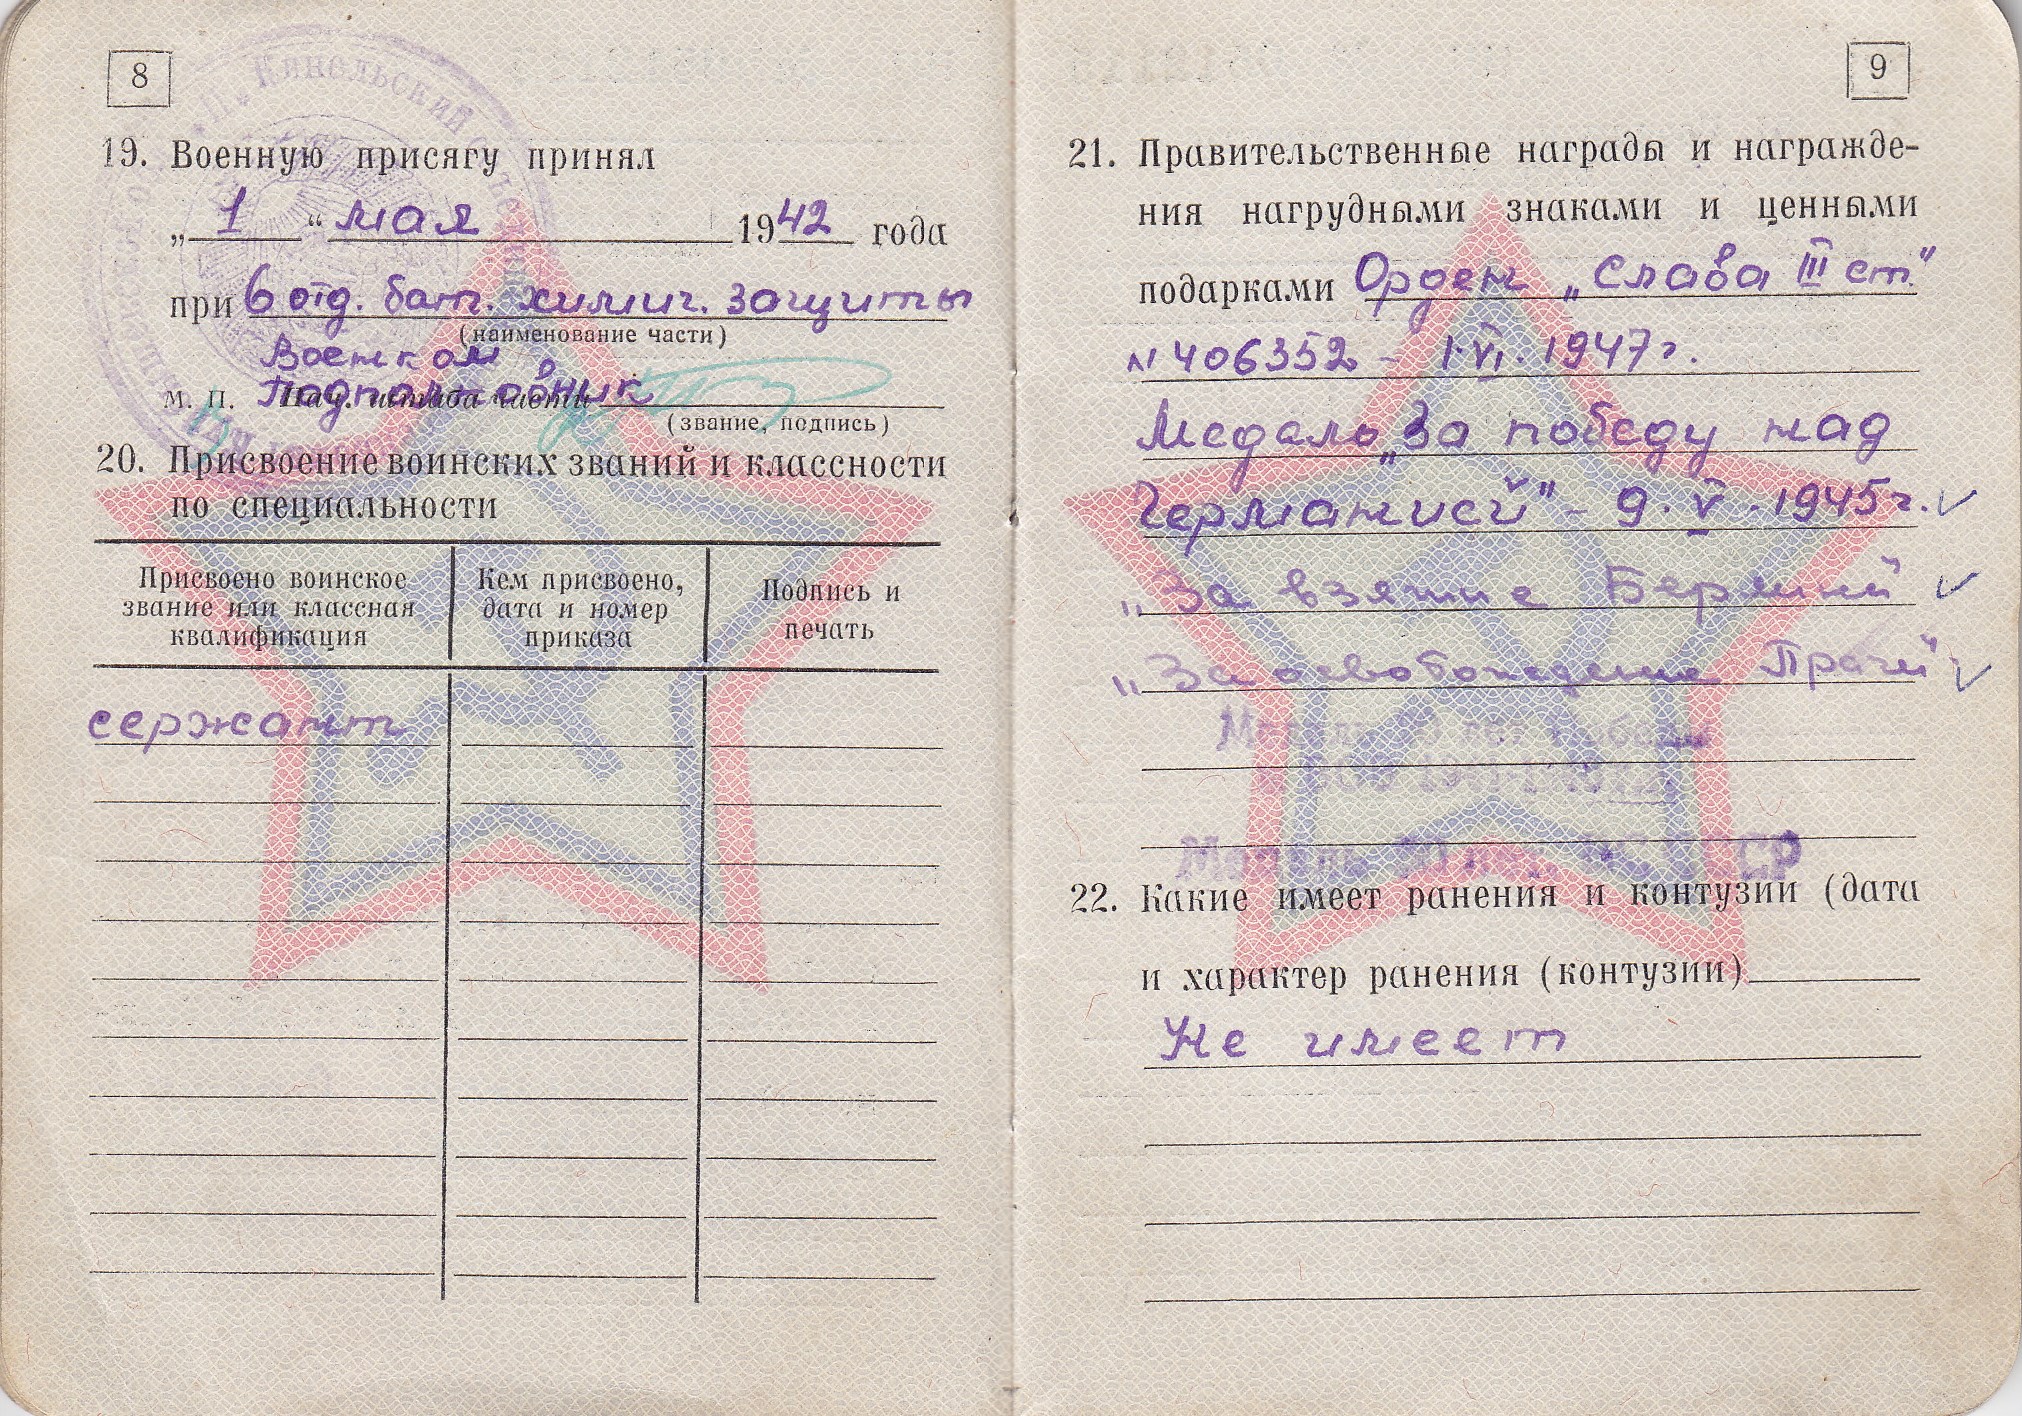 8
19. Военную присягу принял
„1“ мая 1942 года
при 6 отд. бат. химич. защиты
(наименование части)
Военком
м. п. Нач. штаба части подполковник
(звание, подпись)
20. Присвоение воинских званий и классности
по специальности
Присвоено воинское
звание или классная
квалификация
Кем присвоено,
дата и номер
приказа
Подпись и
печать
сержант
9
21. Правительственные награды и награжде-
ния нагрудными знаками и ценными
подарками Орден „Слава III ст."
N 406352 - 1.VI.1947г.
Медаль „За победу над
Германией" - 9.V.1945г.
„За взятие Берлина"
„За освобождение Праги"
Медаль лет Победы
в ВОВ 1941-1945 гг.
Медаль 50 лет ВС СССР
22. Какие имеет ранения и контузии (дата
и характер ранения (контузии)
Не имеет